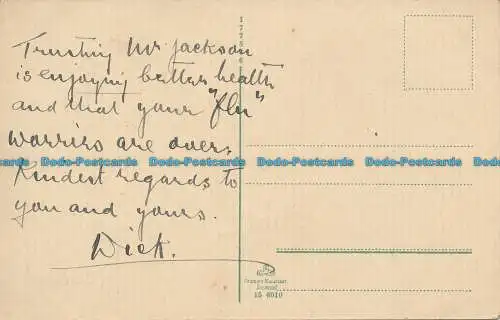 Trusting Mr Jackson
is enjoying better health
and that your "flu"
worries are over.
Kindest regards to
you and yours.
Dick.
Dodo-Postcards Dodo-Postcards Dodo-Postcards Dodo-Postcards Dodo-Postcards Dodo-Postcards
15 6010